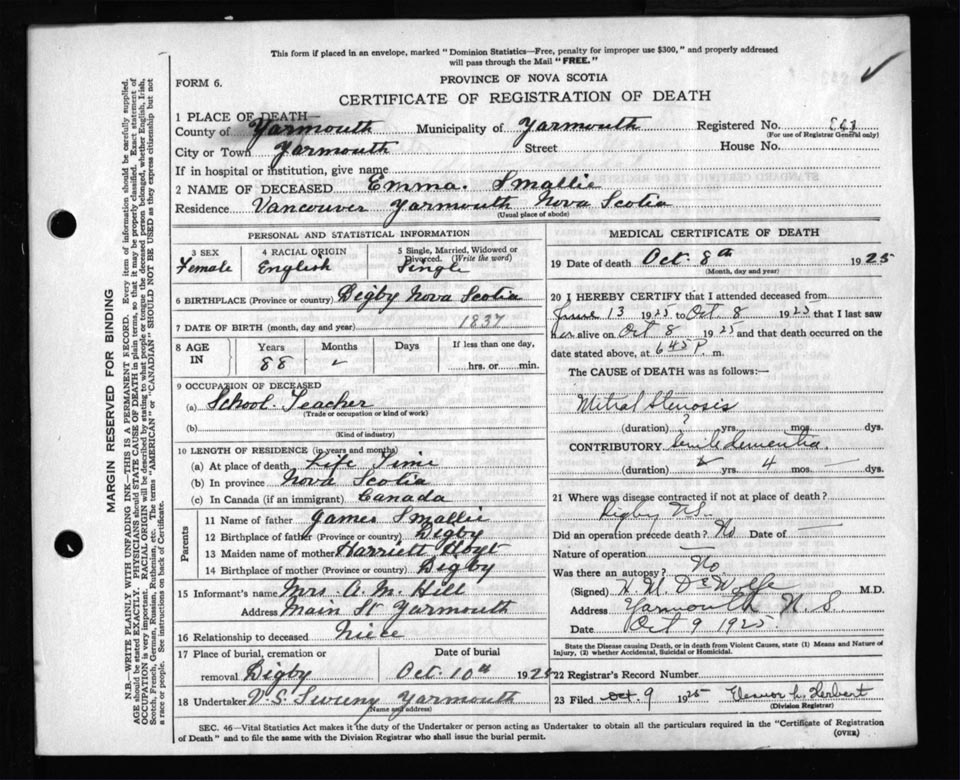 This form if placed in an envelope, marked "Dominion Statistics—Free, penalty for improper use $300," and properly addressed
will pass through the Mail "FREE."
FORM 6.
PROVINCE OF NOVA SCOTIA
CERTIFICATE OF REGISTRATION OF DEATH
1 PLACE OF DEATH—
County of Yarmouth Municipality of Yarmouth Registered No.
(For use of Registrar General only)
City or Town Yarmouth Street House No.
If in hospital or institution, give name
2 NAME OF DECEASED Emma. Smallie
Residence Vancouver Yarmouth Nova Scotia
(Usual place of abode)
PERSONAL AND STATISTICAL INFORMATION
3 SEX 4 RACIAL ORIGIN 5 Single, Married, Widowed or
Divorced. (Write the word)
Female English Single
6 BIRTHPLACE (Province or country) Digby Nova Scotia
7 DATE OF BIRTH (month, day and year) 1837
8 AGE IN Years Months Days If less than one day,
88 hrs. or min.
9 OCCUPATION OF DECEASED
(a) School Teacher
(Trade or occupation or kind of work)
(b)
(Kind of industry)
10 LENGTH OF RESIDENCE (in years and months)
(a) At place of death Life Time
(b) In province Nova Scotia
(c) In Canada (if an immigrant) Canada
Parents
11 Name of father James Smallie
12 Birthplace of father (Province or country) Digby
13 Maiden name of mother Harriett Hoyt
14 Birthplace of mother (Province or country) Digby
15 Informant's name Mrs A. M. Hill
Address Main St Yarmouth
16 Relationship to deceased Niece
17 Place of burial, cremation or Date of burial
removal Digby Oct. 10th 1925
18 Undertaker V. S. Sweeny Yarmouth
(Name and address)
MEDICAL CERTIFICATE OF DEATH
19 Date of death Oct 8th 1925
(Month, day and year)
20 I HEREBY CERTIFY that I attended deceased from
June 13 1925 to Oct. 8 1925 that I last saw
her alive on Oct 8 1925 and that death occurred on
date stated above, at 645 P. m.
The CAUSE of DEATH was as follows:—
Mitral Stenosis
(duration) ? yrs. mos. dys.
CONTRIBUTORY Senile dementia
(duration) 2 yrs. 4 mos. — dys.
21 Where was disease contracted if not at place of death?
Digby N.S.
Did an operation precede death? No Date of —
Nature of operation —
Was there an autopsy? No
(Signed) DeWolfe M.D.
Address Yarmouth N. S.
Date Oct 9 1925.
State the Disease causing Death, or in death from Violent Causes, state (1) Means and Nature of
Injury, (2) whether Accidental, Suicidal or Homicidal.
22 Registrar's Record Number
23 Filed Oct. 9 1925 Herbert
(Division Registrar)
SEC. 46—Vital Statistics Act makes it the duty of the Undertaker or person acting as Undertaker to obtain all the particulars required in the "Certificate of Registration
of Death" and to file the same with the Division Registrar who shall issue the burial permit. (OVER)
MARGIN RESERVED FOR BINDING
N.B.—WRITE PLAINLY WITH UNFADING INK—THIS IS A PERMANENT RECORD. Every item of information should be carefully supplied.
AGE should be stated EXACTLY. PHYSICIANS should STATE CAUSE OF DEATH in plain terms, so that it may be properly classified. Exact statement of
OCCUPATION is very important. RACIAL ORIGIN will be described by stating to what people or tongue the deceased person belonged, whether English, Irish,
Scotch, French, German, Russian, Ruthenian, etc. The terms "AMERICAN" or "CANADIAN" SHOULD NOT BE USED as they express citizenship but not
a race or people. See instructions on back of Certificate.